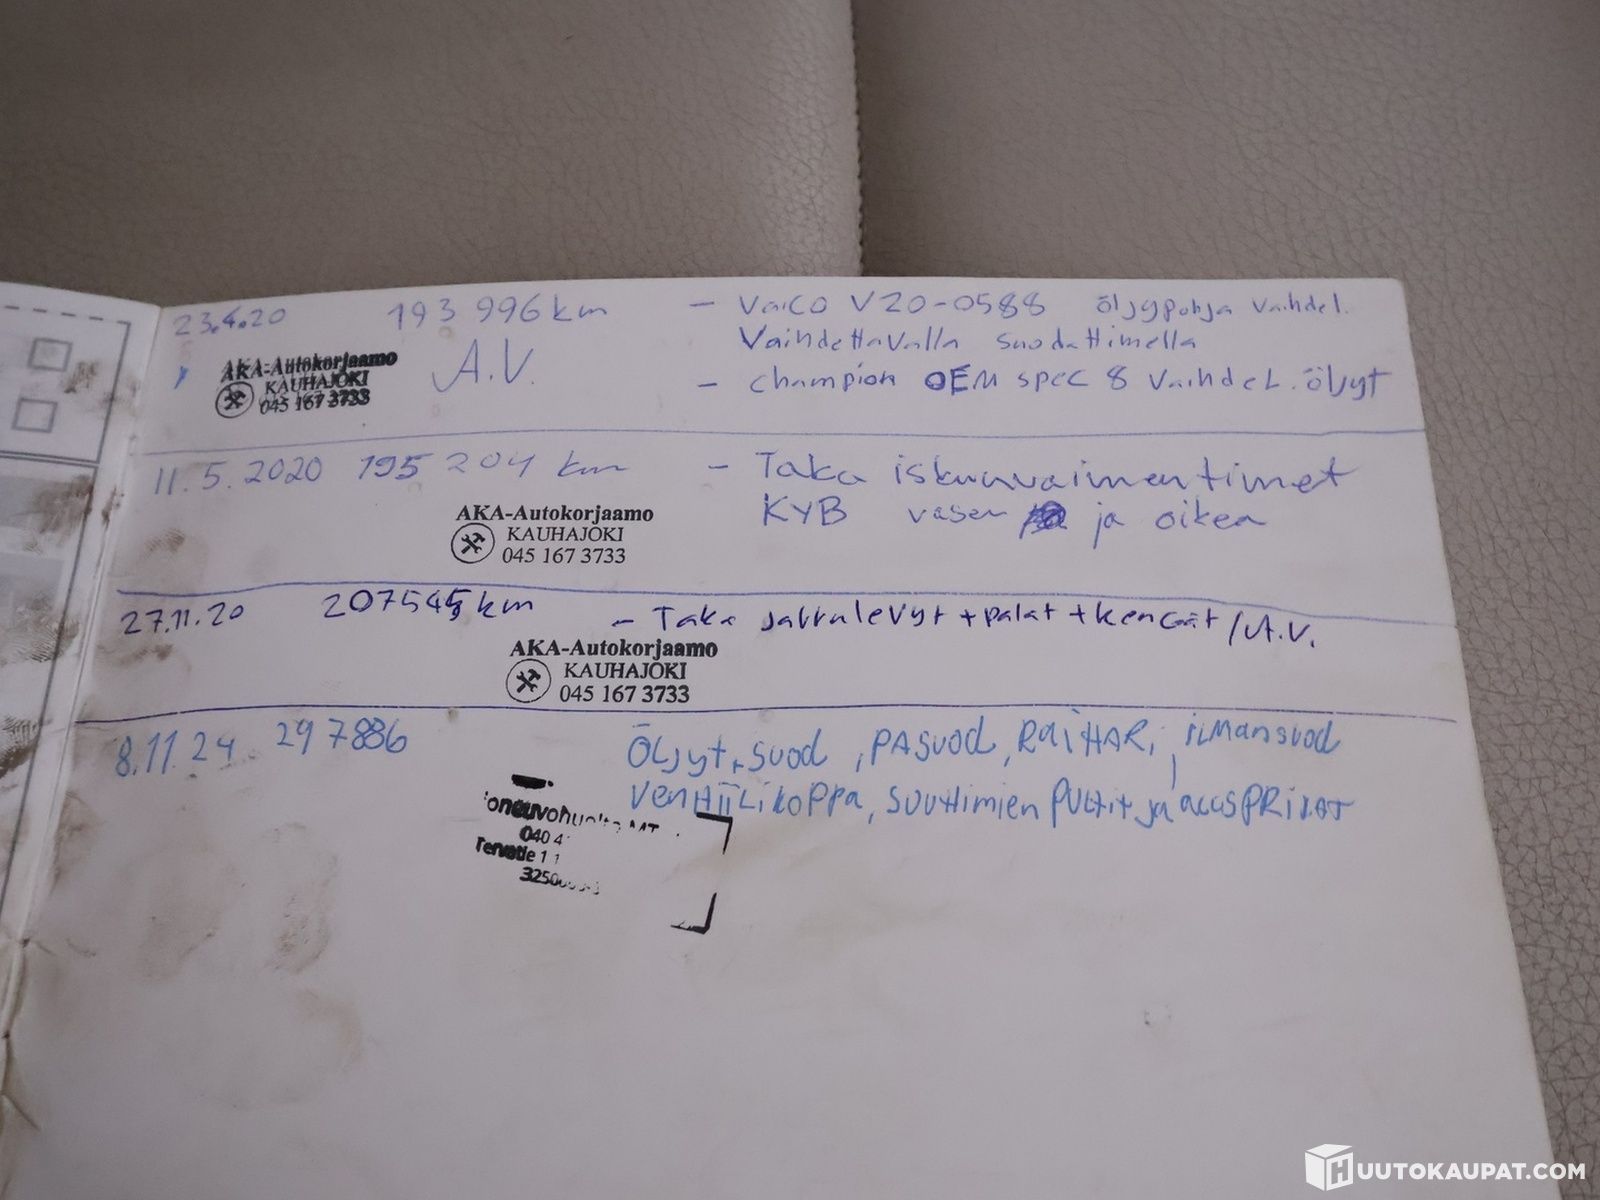 23.4.20 193 996 km - VAICO V20-0588 öljypohja vaihdel.
Vaihdettavalla suodattimella
AKA-Autokorjaamo
KAUHAJOKI
045 167 3733
A.V.
- Champion OEM SPEC 8 Vaihdel. öljyt
11.5.2020 195 204 km - Taka iskunvaimentimet
KYB vasen ja oikea
AKA-Autokorjaamo
KAUHAJOKI
045 167 3733
27.11.20 207545 km - Taka jarrulevyt + palat + kengät / A.V.
AKA-Autokorjaamo
KAUHAJOKI
045 167 3733
8.11.24 297886 ÖLJYT + SUOD, PASUOD, RAiHAR, iLMANSUOD
VENTTIILIKOPPA, SUUTTIMIEN PULTIT JA
040 4
Tervatie 1
HUUTOKAUPAT.COM